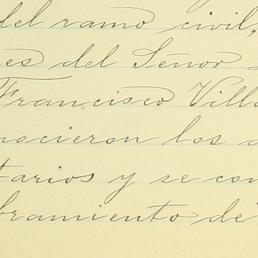 del ramo civil,
es del Señor
Francisco Villa
nocieron los
tarios y se con
bramiento de